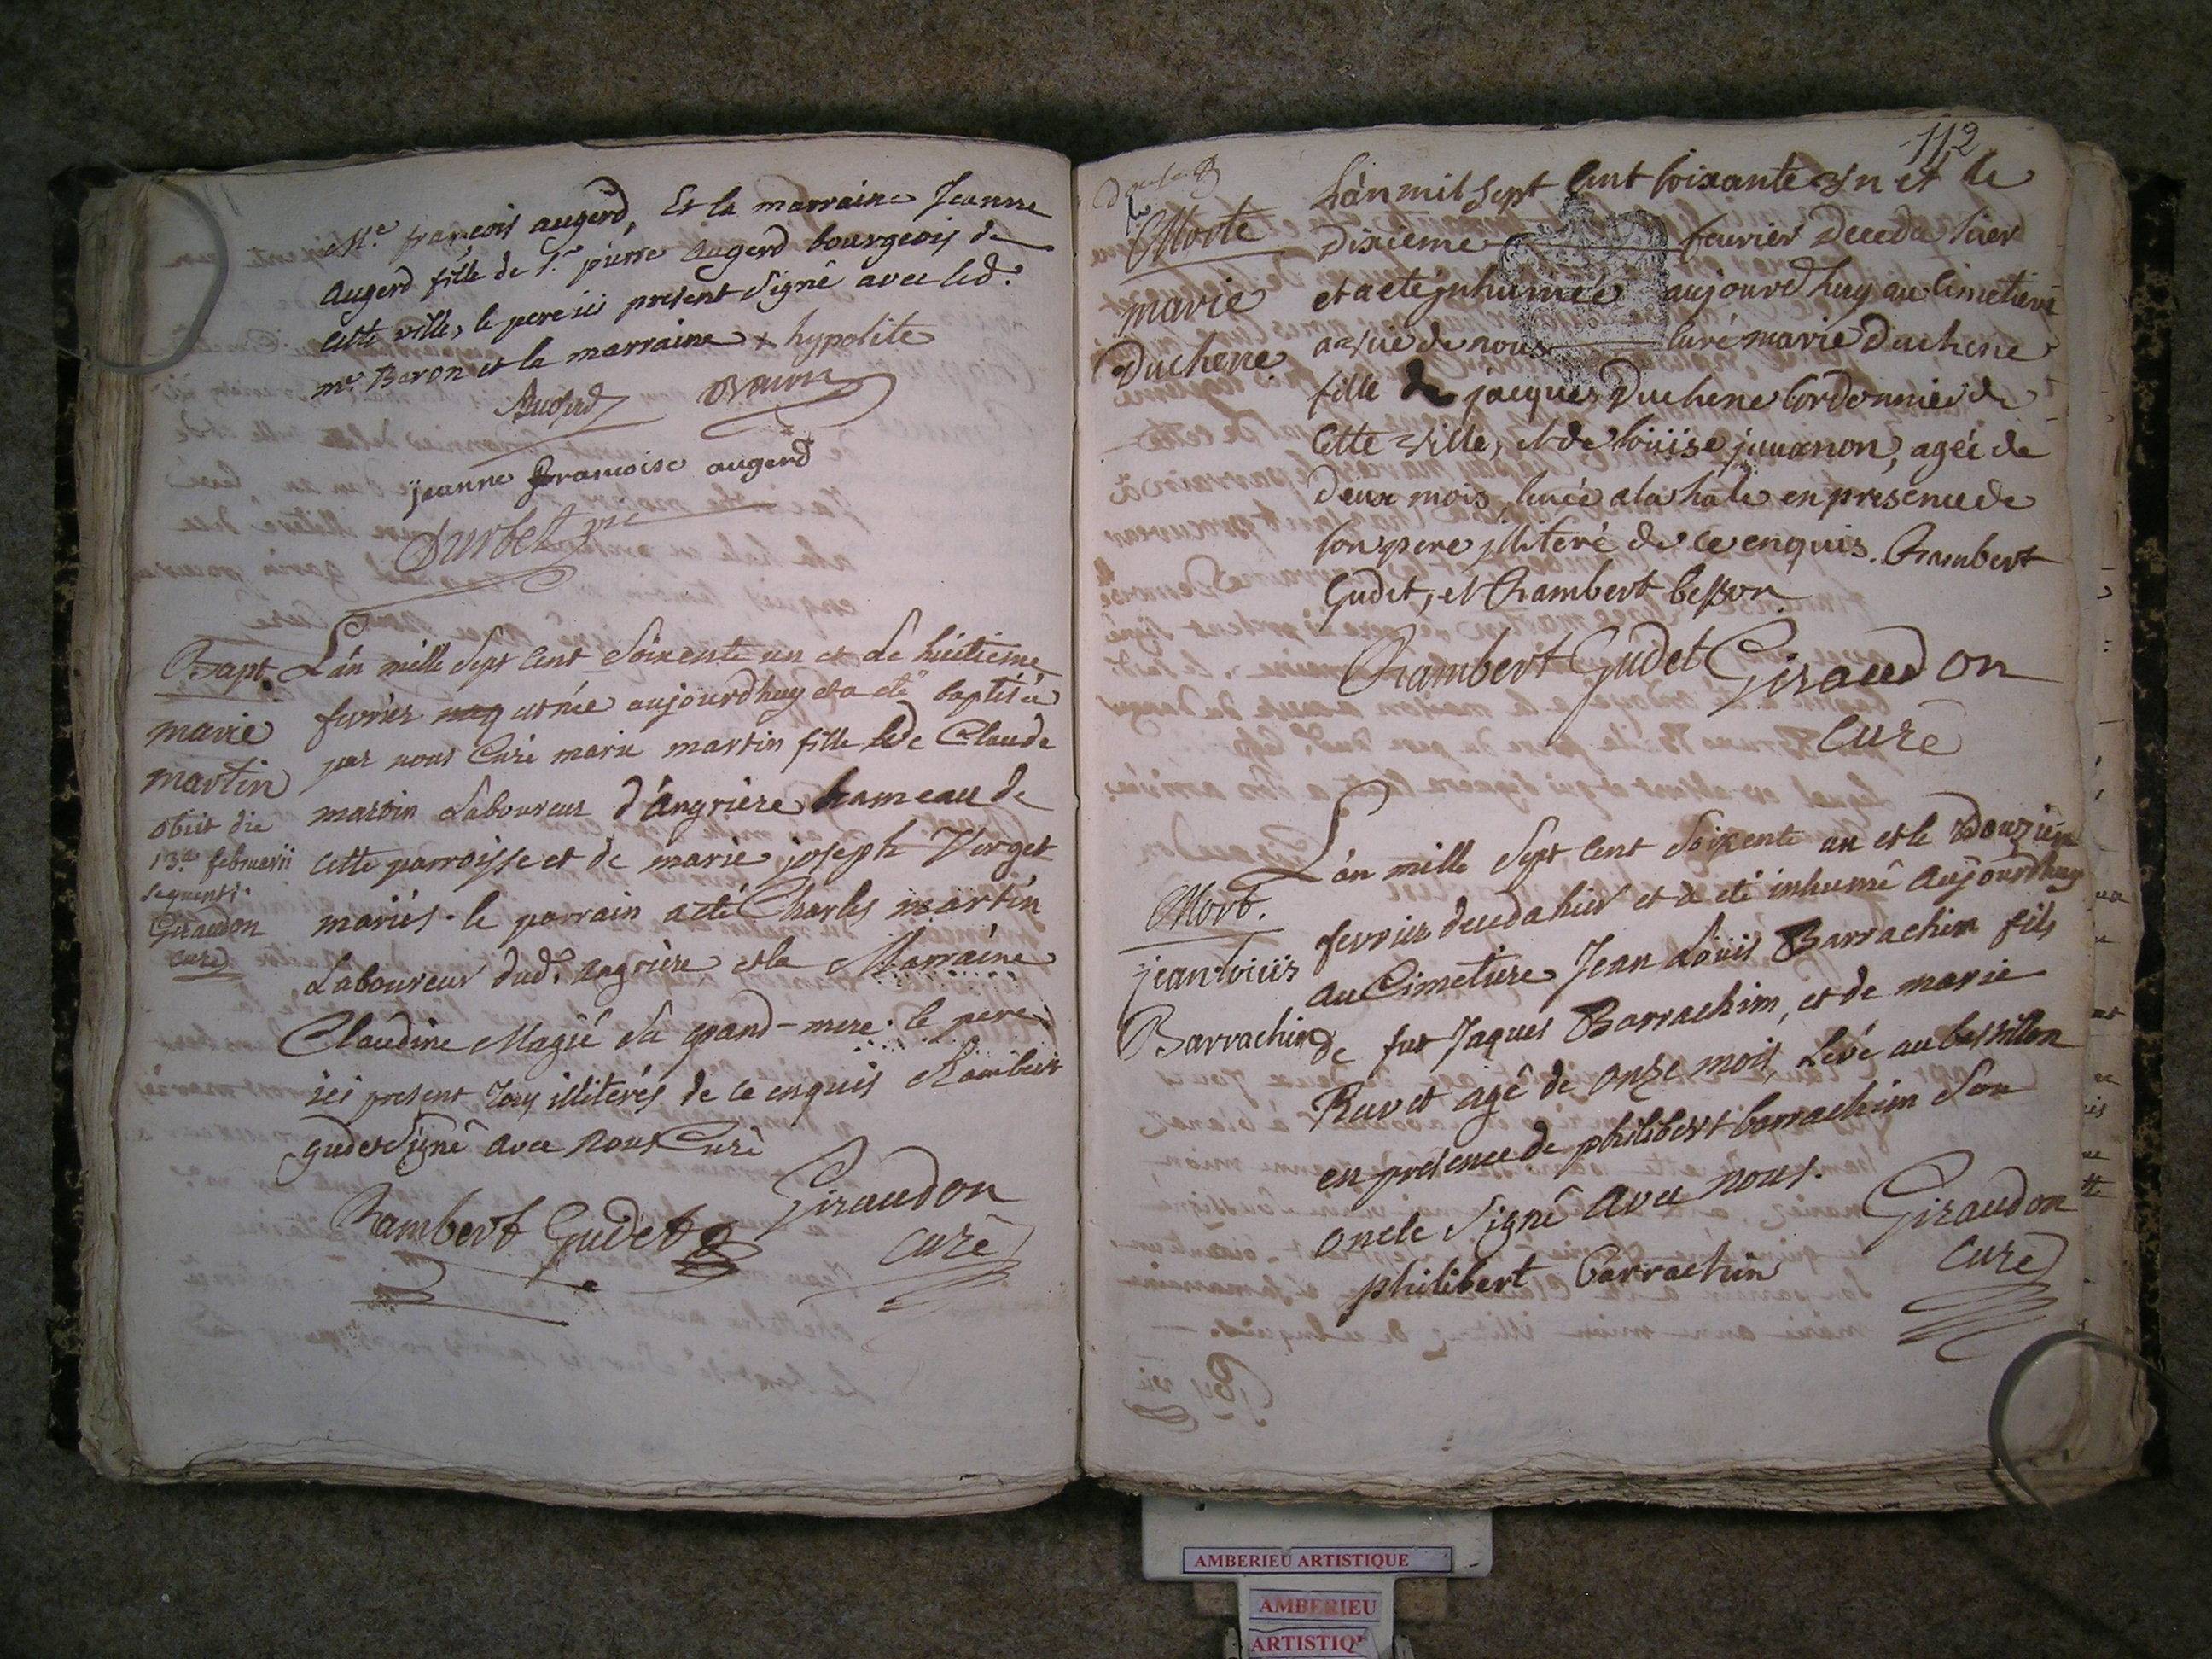 Me. françois augerd, Et la marraine Jeanne
augerd fille de Sr. pierre augerd bourgeois de
cette ville, le pere ici present Signé avec led.
me. Baron et la marraine x hypolite
Augerd
jeanne françoise augerd
Bapt.
marie
martin
obiit die
13a. februarii
sequentis
Giraudon
curé
L'an mille Sept Cent Soixente un et Le huitieme
fevrier est née aujourdhuy et a eté baptisée
par nous Curé marie martin fille de Claude
martin Laboureur d'angriere hameau de
cette parroisse et de marie joseph Verget
mariés. le parrain a eté Charles martin
Laboureur dud. angriere et la Marraine
Claudine Magié Sa grand-mere. le pere
ici present Tous illiterés de ce enquis Rambert
gudet Signé avec nous Curé
Rambert Gudet
Giraudon
curé
112
Morte
marie
Duchene
L'an mil Sept Cent Soixante Un et le
dixieme fevrier Deceda hier
et a eté inhumée aujourd'huy au Cimetiere
de nous Curé marie Duchene
fille de jacques Duchene Cordonnier de
Cette Ville, et de loüise juuanon, agée de
deux mois, levée a la hale en presence de
son pere illiteré de ce enquis. Rambert
Gudet, et Rambert besson
Rambert Gudet Giraudon
curé
Mort.
jean loüis
Barrachin
L'an mille Sept Cent Soixente un et le Douzieme
fevrier deceda hier et a eté inhumé Aujourdhuy
au Cimetiere Jean Loüis Barrachin fils
de fut Jaques Barrachim, et de marie
Ruvet agé de onze mois, Levé au bessillon
en presence de philibert barrachim Son
oncle Signé avec nous.
philibert barrachin
Giraudon
curé
AMBERIEU ARTISTIQUE
AMBERIEU
ARTISTIQ